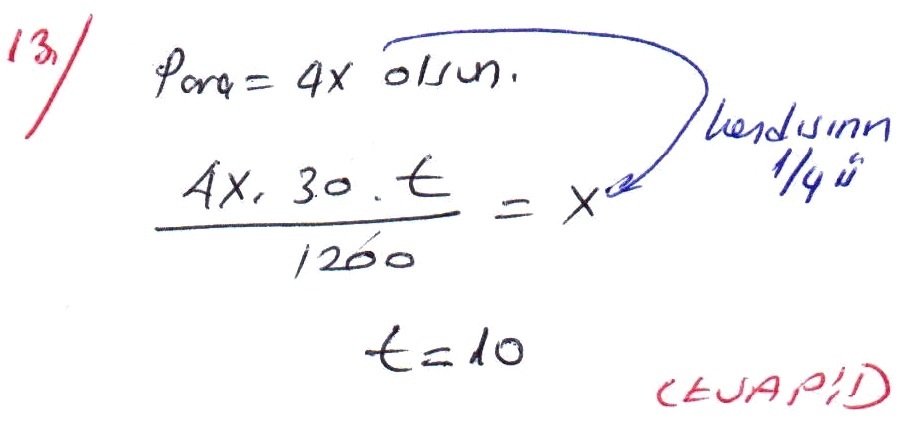 13.)
Para = 4x olsun.
kendisinin
1/4 ü
4x. 30. t / 1200 = x
t = 10
CEVAP: D